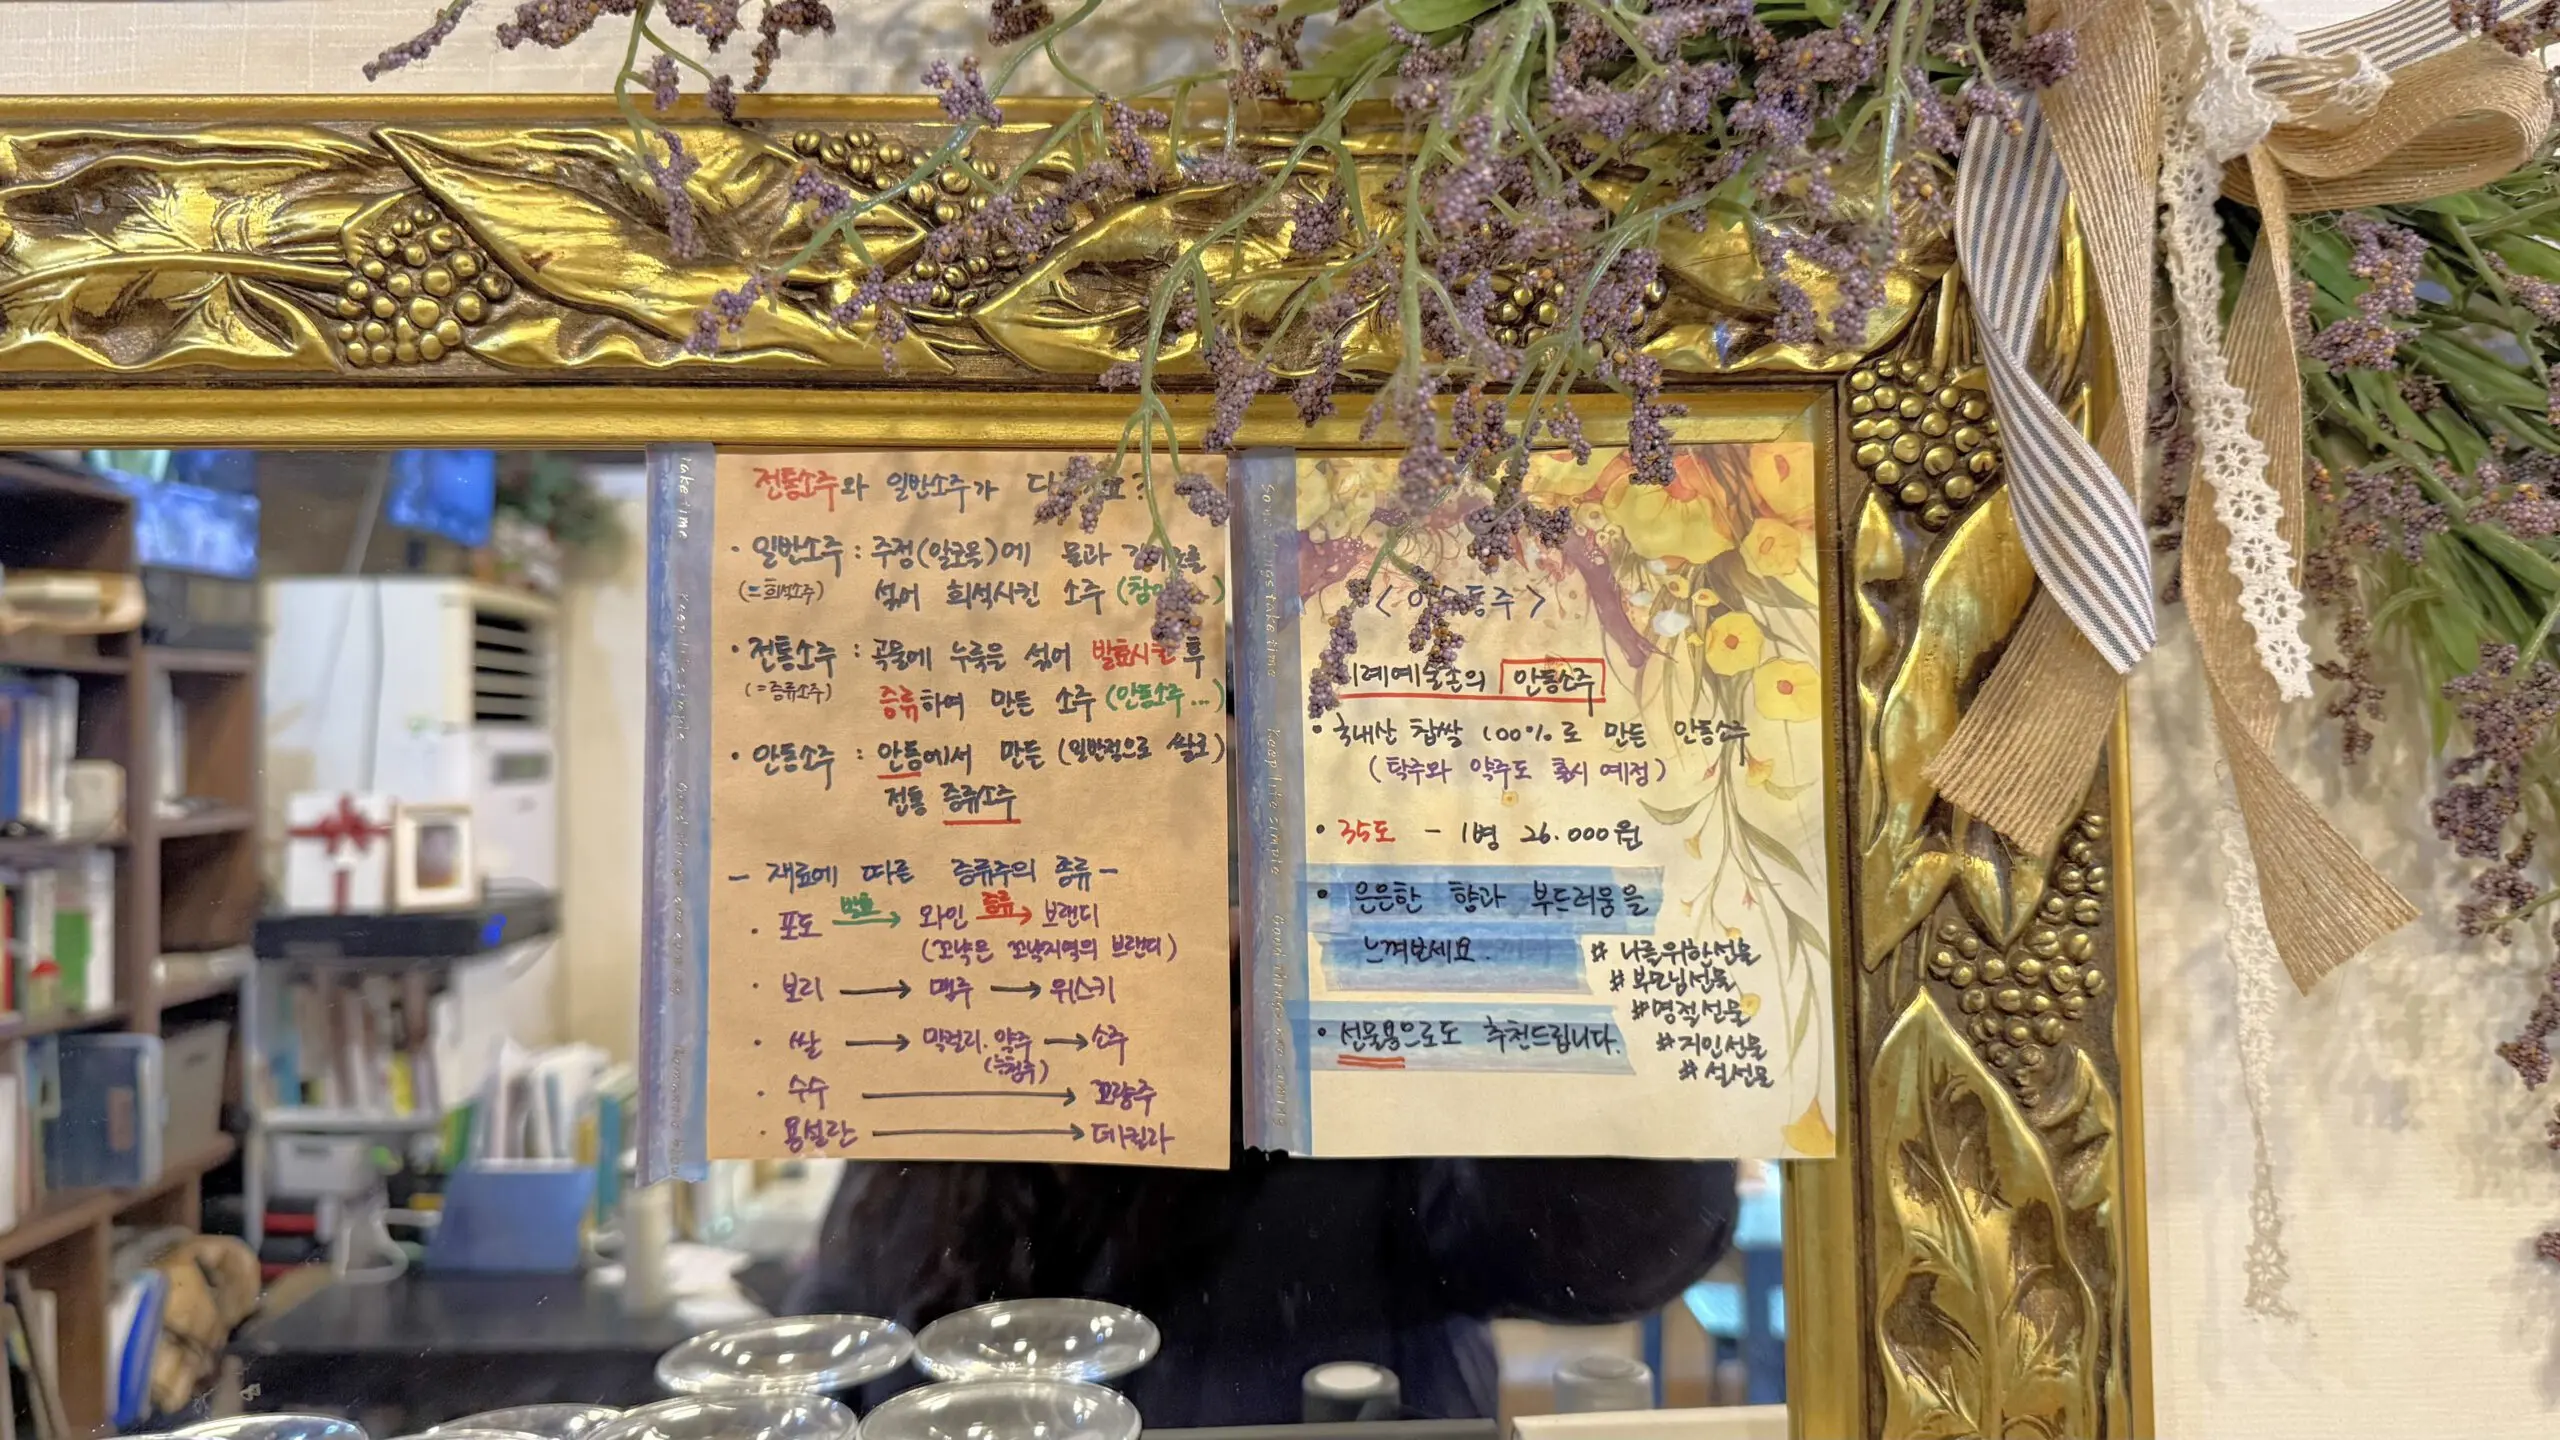 전통소주와 일반소주가
• 일반소주 : 주정(알코올)에 물과
(=희석소주) 섞어 희석시킨 소주
• 전통소주 : 곡물에 누룩을 섞어 발효시킨 후
(=증류소주) 증류하여 만든 소주 (안동소주...)
• 안동소주 : 안동에서 만든 (일반적으로 쌀로)
전통 증류소주
- 재료에 따른 증류주의 종류 -
• 포도 발효→ 와인 증류→ 브랜디
(꼬냑은 꼬냑지역의 브랜디)
• 보리 → 맥주 → 위스키
• 쌀 → 막걸리. 약주 → 소주
(≒청주)
• 수수 → 꼬량주
• 용설란 → 데킬라
안동소주
• 국내산 찹쌀 100%로 만든 안동소주
(탁주와 약주도 출시 예정)
• 35도 - 1병 26.000원
• 은은한 향과 부드러움을
느껴보세요.
# 나를위한선물
# 부모님선물
# 명절선물
# 지인선물
# 설선물
• 선물용으로도 추천드립니다.